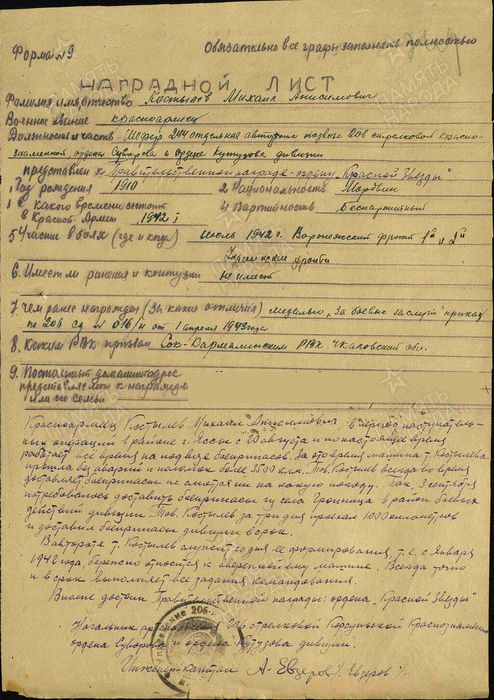 Форма №9
Обязательно все графы заполнять полностью
НАГРАДНОЙ ЛИСТ
Фамилия, имя, отчество Костылев Михаил Анисимович
Военное звание красноармеец
Должность и часть Шофер 244 отдельная автурота подвоза 206 стрелковой Красно-
знаменной, ордена Суворова и ордена Кутузова дивизии
Представлен к Правительственной награде – ордену "Красной Звезды"
1 Год рождения 1910
2 Национальность Мордвин
3 С какого времени состоит в Красной Армии 1942 г
4 Партийность Беспартийный
5 Участие в боях (где и когда) Июль 1942 г. Воронежский фронт 1й и 2й
Украинские фронты
6. Имеет ли ранения и контузии не имеет
7 Чем ранее награжден (За какие отличия) медалью "За боевые заслуги" приказ
по 206 сд № 016/н от 1 апреля 1943 года
8. Каким РВК призван Сок-Кармалинским РВК Чкаловский обл.
9. Постоянный домашний адрес
представляемого к награде
и его семьи
Красноармеец Костылев Михаил Анисимович в период наступатель-
ных операций в районе г. Яссы с 20 августа и по настоящее время
работает все время на подвозе боеприпасов. За это время машина т. Костылева
прошла без аварий и поломок более 3500 км. Тов. Костылев всегда во время
доставляет боеприпасы не смотря ни на какую погоду. Так 3 сентября
потребовалось доставить боеприпасы из села в район боевых
действий дивизии. Тов. Костылев за три дня проехал 1000 километров
и доставил боеприпасы дивизии в срок.
В автороте т. Костылев служит со дня её формирования, т.е. с января
1942 года, бережно относится к вверенной ему машине. Всегда точно
и в срок выполняет все задания командования.
Вполне достоин Правительственной награды: ордена "Красной Звезды"
Начальник артснабжения 206 стрелковой Корсуньской Краснознаменной
ордена Суворова и ордена Кутузова дивизии
Инженер-капитан А. Евзеров /Евзеров/
206-й
ПАМЯТЬ НАРОДА